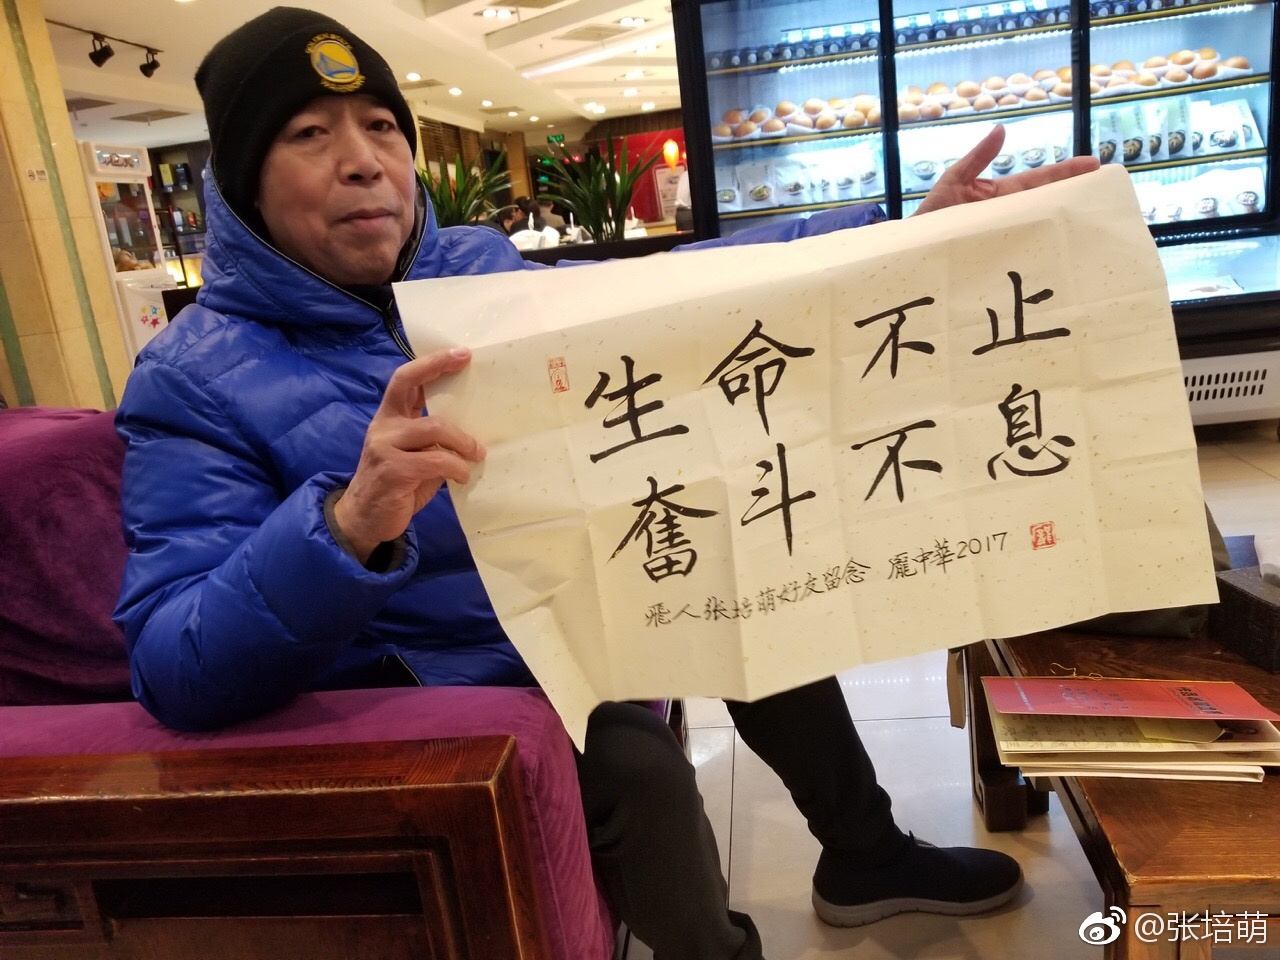 生命不止
奮斗不息
飛人张培萌好友留念 龐中華2017
@张培萌